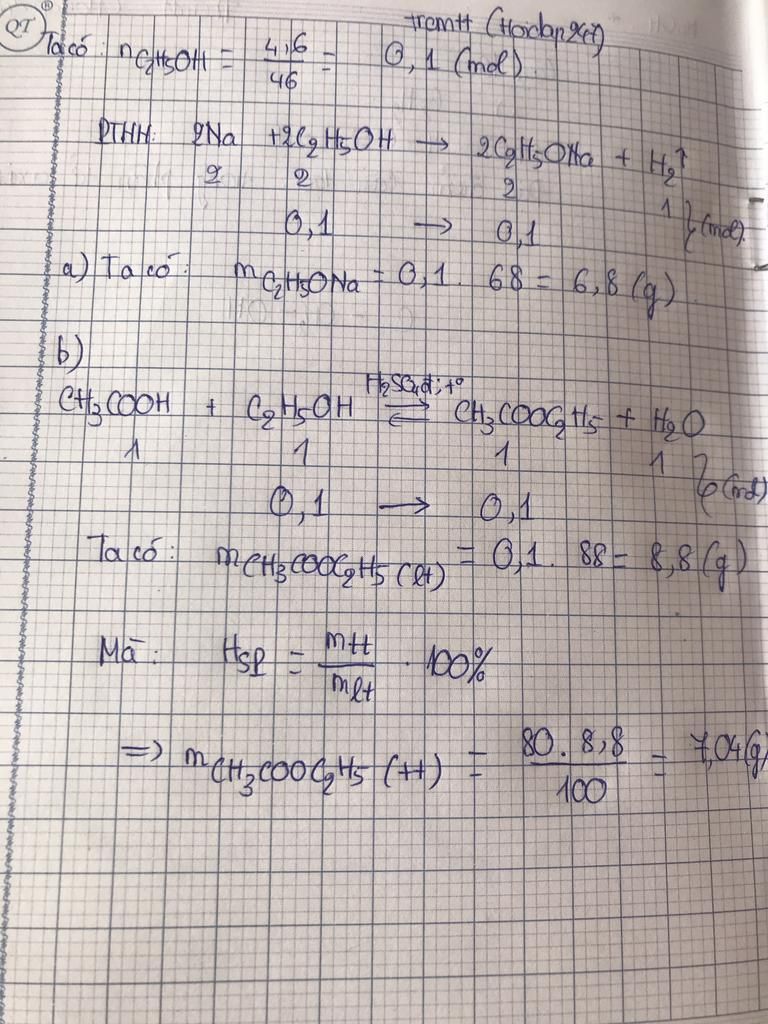 QT
tremtt (Hoidap247)
Ta có: nC2H5OH = 4,6/46 = 0,1 (mol).
PTHH: 2Na + 2C2H5OH → 2C2H5ONa + H2↑
2 2 2 1 } (mol).
0,1 → 0,1
a) Ta có: mC2H5ONa = 0,1. 68 = 6,8 (g).
b)
CH3COOH + C2H5OH ⇌ (H2SO4đ; t°) CH3COOC2H5 + H2O
1 1 1 1 } (mol)
0,1 → 0,1
Ta có: mCH3COOC2H5 (lt) = 0,1. 88 = 8,8 (g)
Mà: HSP = mtt/mlt . 100%
=> mCH3COOC2H5 (tt) = 80. 8,8/100 = 7,04 (g)